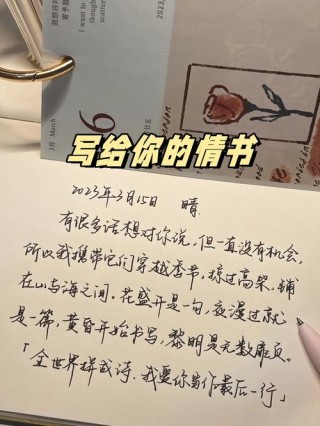 I want to
though
scatter
2023,
3月 March
6
廿五
写给你的情书
2023年3月15日 晴.
有很多话想对你说,但一直没有机会,
所以我携带记们穿越季节,掠过高架,铺
在山与海之间。花盛开是一句,夜漫过就
是一篇,黄昏开始书写,黎明是无数扉页。
「全世界拼成诗,我要你当作最后一行」